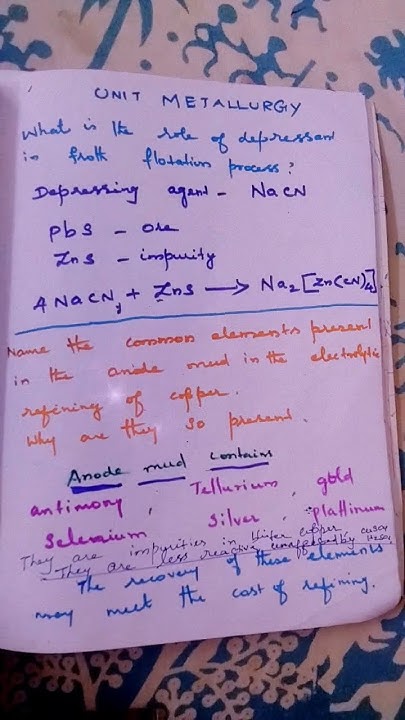 UNIT METALLURGY
What is the role of depressant
in froth flotation process?
Depressing agent - NaCN
PbS - ore
ZnS - impurity
4NaCN, + ZnS → Na2[Zn(CN)4].
Name the common elements present
in the anode mud in the electrolytic
refining of copper.
Why are they so present.
Anode mud contains
antimony, Tellurium, gold
Selenium Silver, plattinum
They are impurities in blister copper.
They are less reactive unaffected by CuSO4 H2SO4
The recovery of these elements
may meet the cost of refining.